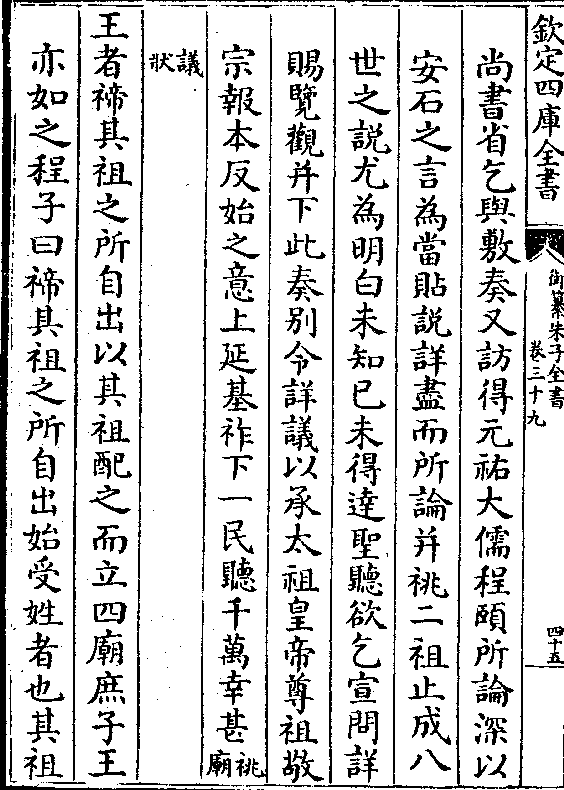 欽定四庫全書
御纂朱子全書
卷三十九
四十五
尚書省乞與敷奏又訪得元祐大儒程頤所論深以
安石之言為當貼説詳盡而所論并祧二祖止成八
世之説尤為明白未知已未得達聖聽欲乞宣問詳
賜覽觀并下此奏别令詳議以承太祖皇帝尊祖敬
宗報本反始之意上延基祚下一民聽千萬幸甚祧廟
議狀
王者禘其祖之所自出以其祖配之而立四廟庶子王
亦如之程子曰禘其祖之所自出始受姓者也其祖